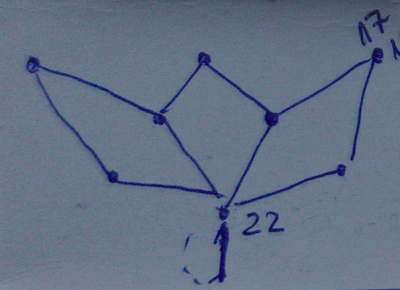 17
22